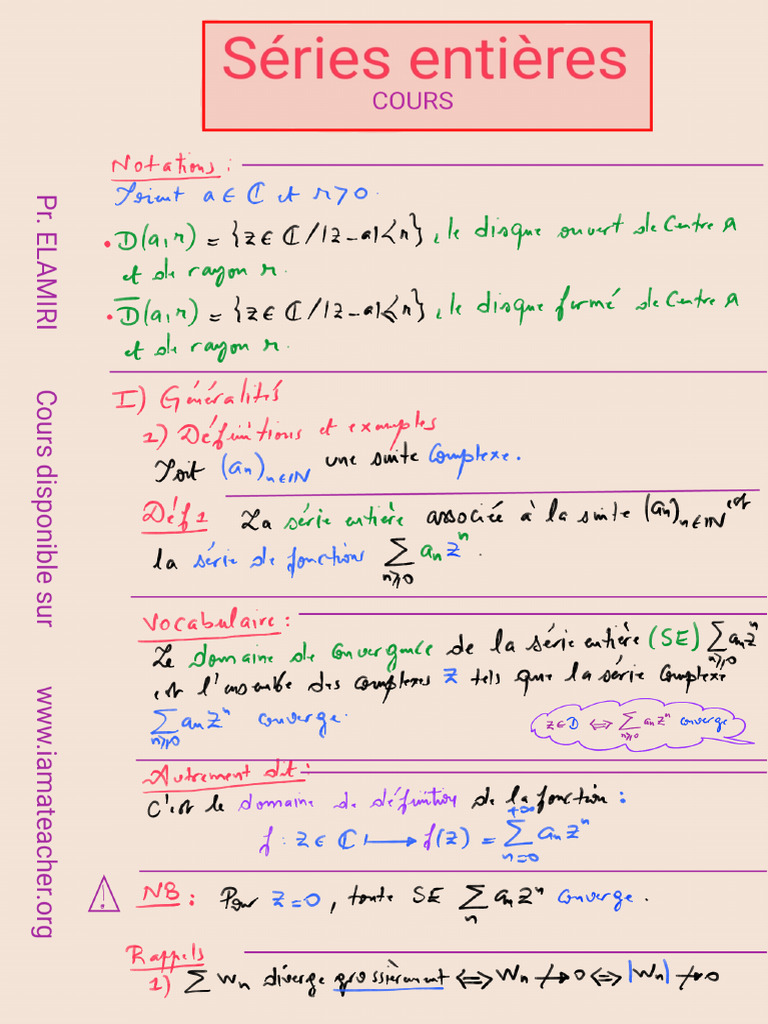 Séries entières
COURS
Pr. ELAMIRI Cours disponible sur www.iamateacher.org
Notations :
Soient a ∈ ℂ et r > 0.
• D(a,r) = {z ∈ ℂ / |z-a| < r}, le disque ouvert de Centre a
et de rayon r.
• D̅(a,r) = {z ∈ ℂ / |z-a| ≤ r}, le disque fermé de Centre a
et de rayon r.
I) Généralités
1) Définitions et examples
Soit (an)n∈ℕ une suite Complexe.
Déf 1 La série entière associée à la suite (an)n∈ℕ est
la série de fonctions ∑n≥0 an zⁿ.
Vocabulaire :
Le domaine de convergence de la série entière (SE) ∑n≥0 an zⁿ
est l'ensemble des complexes z tels que la série Complexe
∑n≥0 an zⁿ converge.
z ∈ D ⟺ ∑n≥0 an zⁿ converge
Autrement dit :
C'est le domaine de définition de la fonction :
f : z ∈ ℂ ⟼ f(z) = ∑n=0+∞ an zⁿ
⚠ NB : Pour z=0, toute SE ∑n an zⁿ converge.
Rappels
1) ∑ wn diverge grossièrement ⟺ wn ↛ 0 ⟺ |wn| ↛ 0